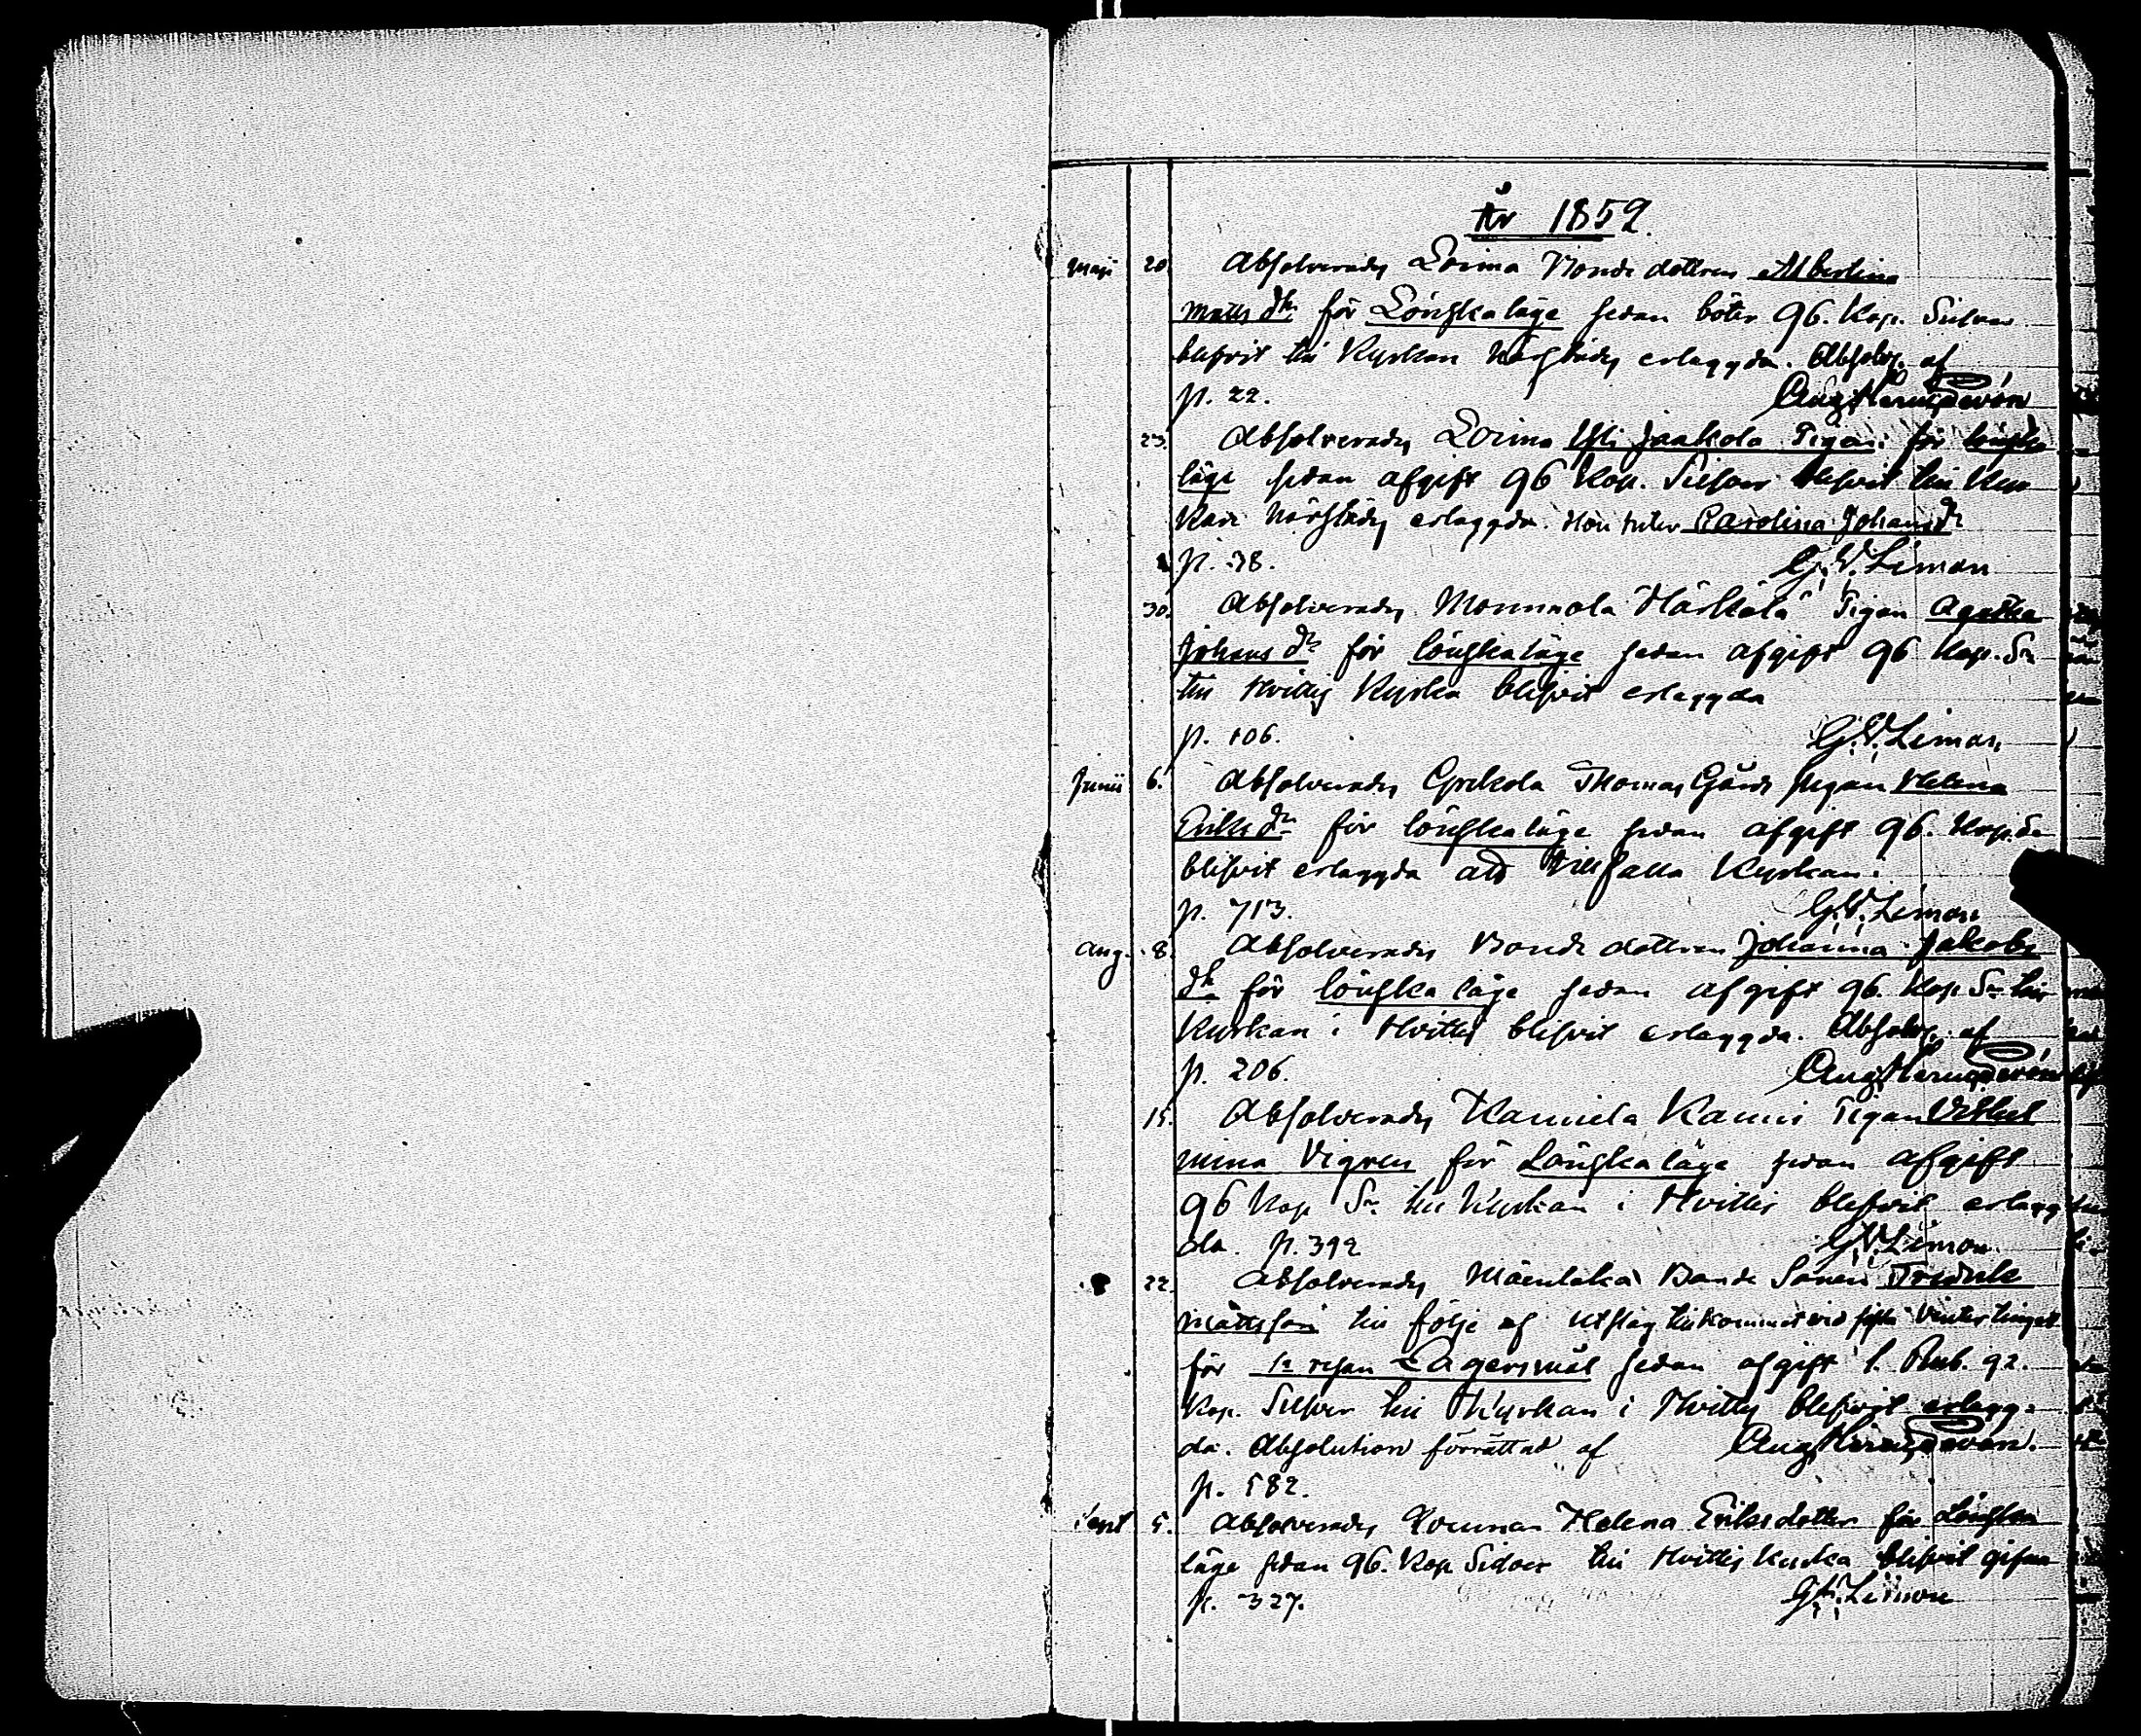 År 1859.
Maji 20. Absolverades Loima Bonde dottren Albertina
Matts dr. för Lönskaläge sedan böter 96. Kop. Silfver
blifvit till Kyrkan härstädes erlaggda. Absolv. af
p. 22. Aug
23. Absolverades Loima Yli Jaakola Pigan för lönska
läge sedan afgift 96 Kop. Silfver blifvit till Kyr
kan härstädes erlaggda. Hon heter Carolina Johansdr
p. 38. G. V. Liman
30. Absolverades Mommola Härkälä Pigan Agatha
Johans dr för lönskaläge sedan afgift 96 Kop. Sr
till Hvittis Kyrka blifvit erlaggda
p. 106. G. V. Liman
Junii 6. Absolverades Thomas Gårds pigan Helena
Eriks dr för lönskaläge sedan afgift 96. Kop. Sr
blifvit erlaggda att tillfalla Kyrkan.
p. 713. G. V. Liman
Aug. 8. Absolverades Bonde dottren Johanna Jakobs
dr för lönska läge sedan afgift 96. Kop. Sr till
Kyrkan i Hvittis blifvit erlaggda. Absolv. af
p. 206. Aug
15. Absolverades Karniela Pigan Vilhel
mina Vigren för Lönskaläge sedan afgift
96 Kop Sr. till Kyrkan i Hvittis blifvit erlagg
da. p. 392 G. V. Liman
22. Absolverades Bonde Sonen Fredrik
Mattsson till följe af utslag tillkommet vid sista Vintertinget
för 1a resan Lägersmål sedan afgift 1. Rub. 92.
Kop. Silfver till Kyrkan i Hvittis blifvit erlagg-
da. Absolution förrättad af Aug
p. 582.
Sept 5. Absolverades Qvinnan Helena Eriksdotter för Lönska
läge sedan 96. Kop Silfver till Hvittis Kyrka blifvit gifna
p. 327. G. V. Liman